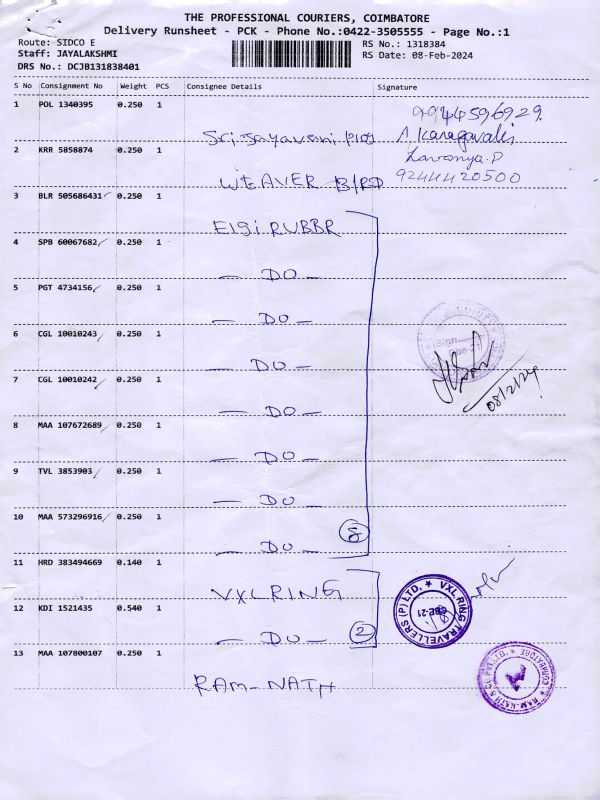 THE PROFESSIONAL COURIERS, COIMBATORE
Delivery Runsheet - PCK - Phone No.:0422-3505555 - Page No.:1
Route: SIDCO E
Staff: JAYALAKSHMI
DRS No.: DCJB131838401
RS No.: 1318384
RS Date: 08-Feb-2024
S No Consignment No Weight PCS Consignee Details Signature
1 POL 1340395 0.250 1
9944596929
Sri Jayaveni
2 KRR 5858874 0.250 1
Lavanya.P
WEAVER BIRD 9244420500
3 BLR 505686431 0.250 1
ElGi RUBBR
4 SPB 60067682 0.250 1
— DO —
5 PGT 4734156 0.250 1
— DO —
6 CGL 10010243 0.250 1
— DO —
7 CGL 10010242 0.250 1
— DO —
08/2/24
8 MAA 107672689 0.250 1
— DO —
9 TVL 3853903 0.250 1
— DO —
10 MAA 573296916 0.250 1
— DO — 8
11 HRD 383494669 0.140 1
VXL RING
12 KDI 1521435 0.540 1
— DO — 2
VXL RING TRAVELLERS (P) LTD. ★
CBE-21
13 MAA 107800107 0.250 1
RAM-NATH
RAM-NATH & CO PVT. LTD. ★ COIMBATORE ★